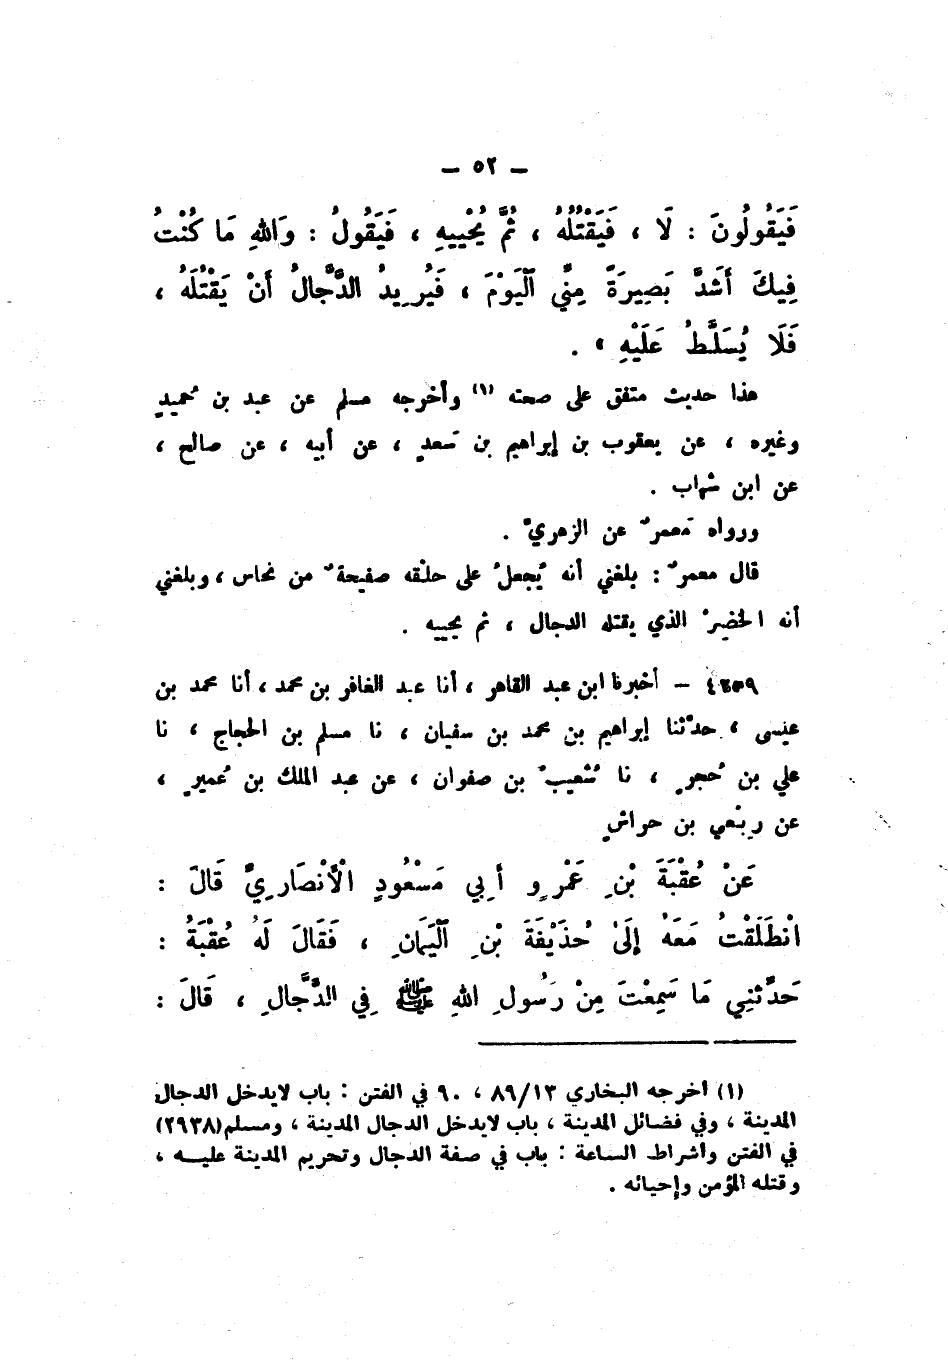 — ٥٢ —
فَيَقُولُونَ : لَا ، فَيَقْتُلُهُ ، ثُمَّ يُحْيِيهِ ، فَيَقُولُ : وَاللهِ مَا كُنْتُ
فِيكَ أَشَدَّ بَصِيرَةً مِنِّي ٱلْيَوْمَ ، فَيُرِيدُ الدَّجَّالُ أَنْ يَقْتُلَهُ ،
فَلَا يُسَلَّطُ عَلَيْهِ » .
هذا حديث متفق على صحته (١) وأخرجه مسلم عن عبد بن حُميدٍ
وغيره ، عن يعقوب بن إبراهيم بن سَعدٍ ، عن أبيه ، عن صالح ،
عن ابن شهاب .
ورواه مَعمرٌ عن الزهريِّ .
قال معمرٌ : بلغني أنه يُجعلُ على حلْقه صفيحةٌ من نحاس ، وبلغني
أنه الخضِرُ الذي يقتله الدجال ، ثم يحييه .
٤٢٥٩ — أخبرنا ابن عبد القاهر ، أنا عبد الغافر بن محمد ، أنا محمد بن
عيسى ، حدَّثنا إبراهيم بن محمد بن سفيان ، نا مسلم بن الحجاج ، نا
علي بن حُجرٍ ، نا شُعيبُ بن صفوان ، عن عبد الملك بن عُميرٍ ،
عن رِبْعي بن حراشٍ
عَنْ عُقْبَةَ بْنِ عَمْرٍو أَبِي مَسْعُودٍ الْأَنْصَارِيِّ قَالَ :
انْطَلَقْتُ مَعَهُ إِلَىْ حُذَيْفَةَ بْنِ ٱلْيَمَانِ ، فَقَالَ لَهُ عُقْبَةُ :
حَدِّثْنِي مَا سَمِعْتَ مِنْ رَسُولِ اللهِ ﷺ فِي الدَّجَّالِ ، قَالَ :
(١) أخرجه البخاري ٨٩/١٣ ، ٩٠ في الفتن : باب لايدخل الدجال
المدينة ، وفي فضائل المدينة ، باب لايدخل الدجال المدينة ، ومسلم(٢٩٣٨)
في الفتن وأشراط الساعة : باب في صفة الدجال وتحريم المدينة عليــه ،
وقتله المؤمن وإحيائه .